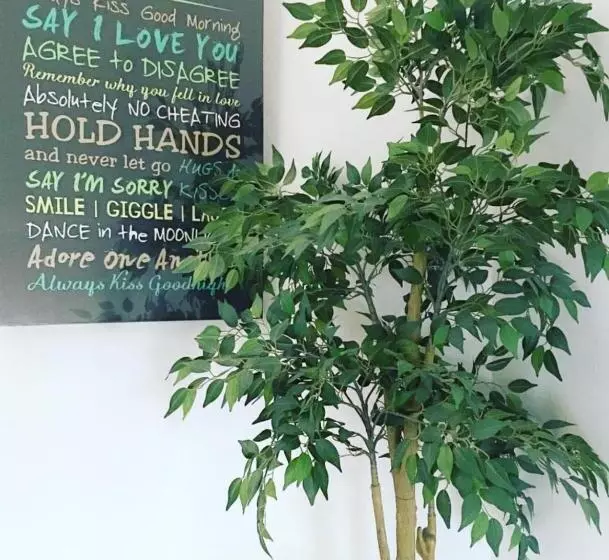 Kiss Good Morning
SAY I LOVE YOU
AGREE to DISAGREE
Remember why you fell in love
Absolutely NO CHEATING
HOLD HANDS
and never let go HUGS &
SAY I'M SORRY KISSES
SMILE | GIGGLE | LA
DANCE in the MOONLI
Adore One An
Always Kiss Goodnight